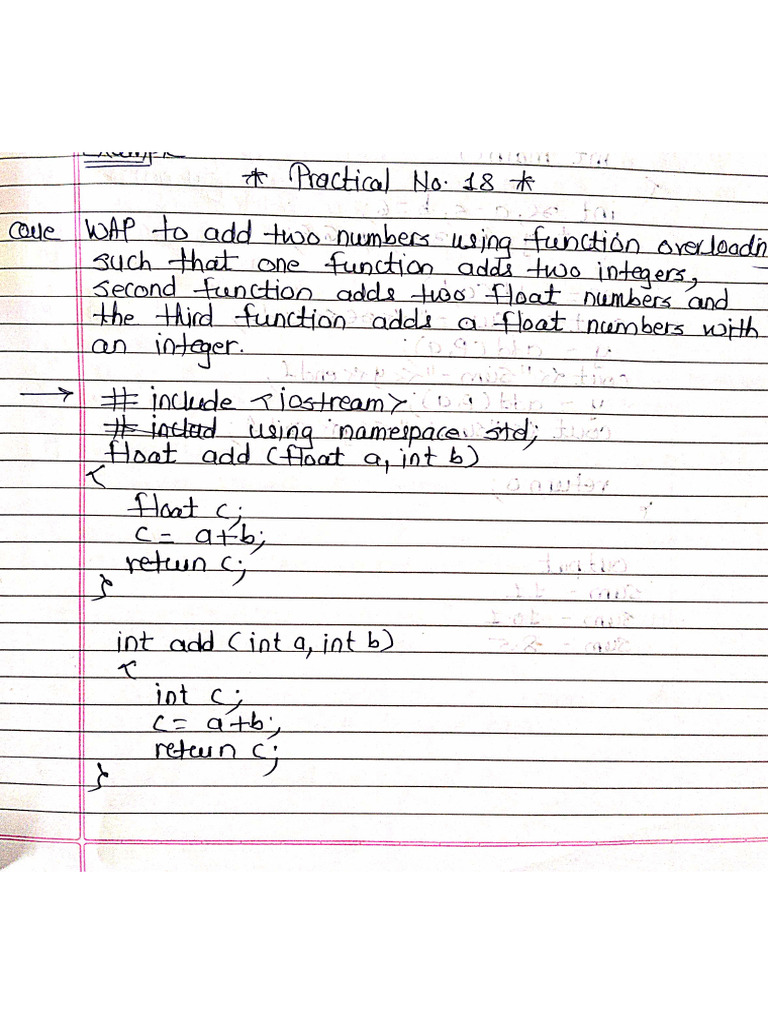 * Practical No. 18 *
WAP to add two numbers using function overloadn
such that one function adds two integers,
second function adds two float numbers and
the third function adds a float numbers with
an integer.
→ # include <iostream>
using namespace std;
float add (float a, int b)
{
float c;
c = a+b;
return c;
}
int add (int a, int b)
{
int c;
c = a+b;
return c;
}